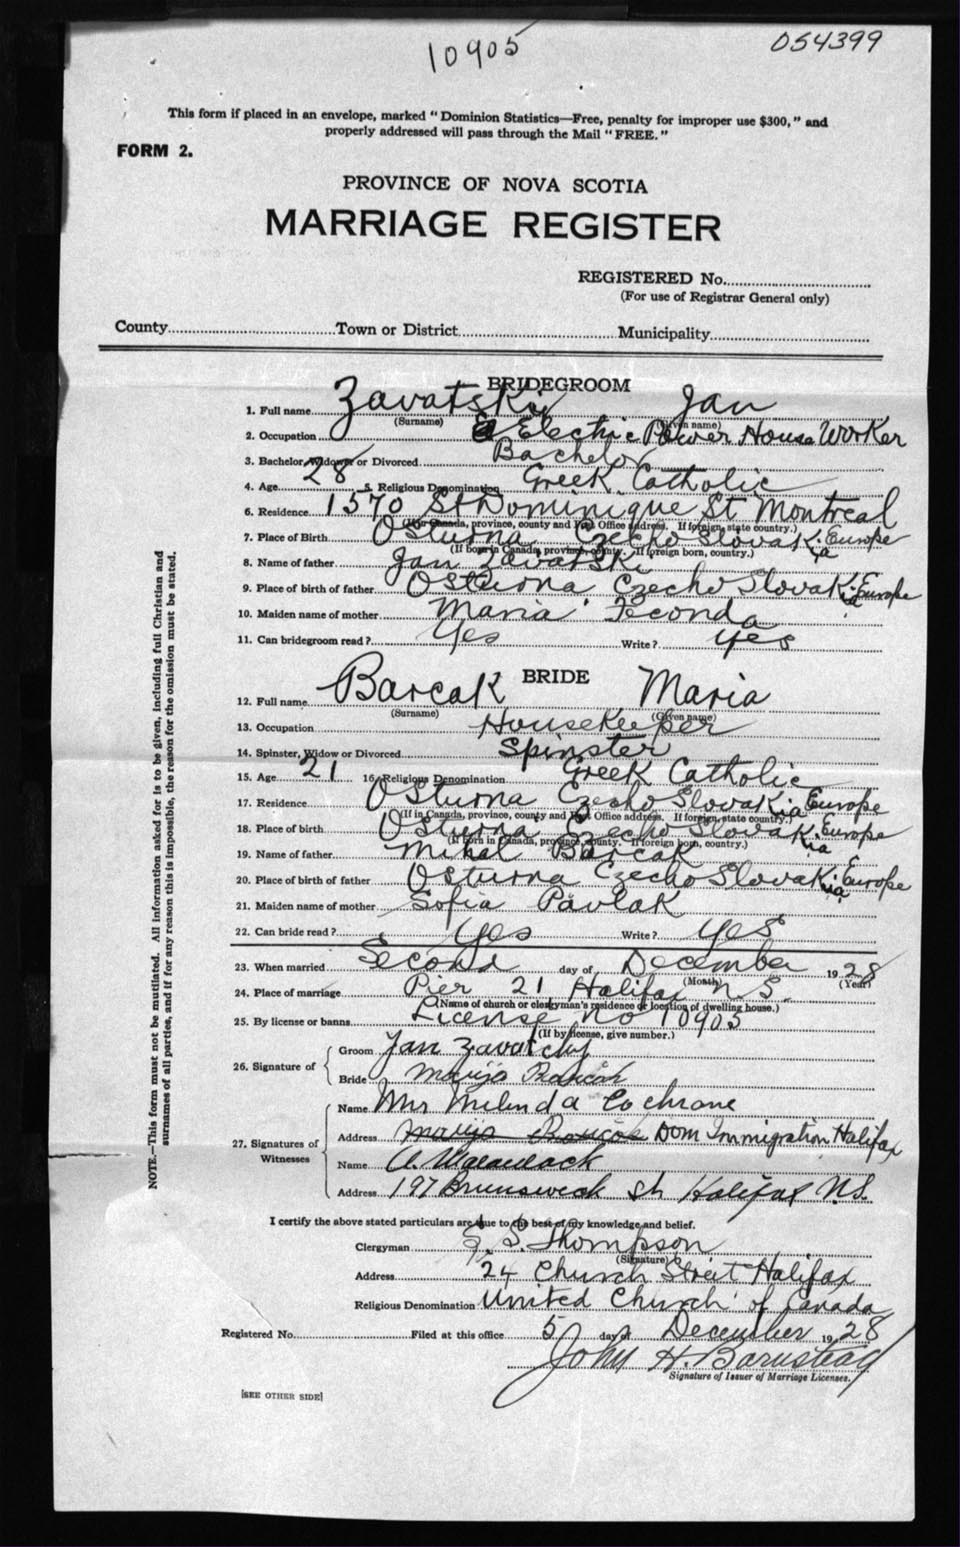 10905
054399
This form if placed in an envelope, marked "Dominion Statistics—Free, penalty for improper use $300," and
properly addressed will pass through the Mail "FREE."
FORM 2.
PROVINCE OF NOVA SCOTIA
MARRIAGE REGISTER
REGISTERED No.
(For use of Registrar General only)
County Town or District Municipality
BRIDEGROOM
1. Full name Zavatski Jan
(Surname) (Given name)
2. Occupation Electric Power House Worker
3. Bachelor, Widower or Divorced Bachelor
4. Age 28 5. Religious Denomination Greek Catholic
6. Residence 1570 St Dominique St Montreal
(If in Canada, province, county and Post Office address. If foreign, state country.)
7. Place of Birth Osturna Czecho Slovakia Europe
(If born in Canada, province, county. If foreign born, country.)
8. Name of father Jan Zavatski
9. Place of birth of father Osturna Czecho Slovakia Europe
10. Maiden name of mother Maria Feconda
11. Can bridegroom read? Yes Write? yes
BRIDE
12. Full name Barcak Maria
(Surname) (Given name)
13. Occupation Housekeeper
14. Spinster, Widow or Divorced Spinster
15. Age 21 16. Religious Denomination Greek Catholic
17. Residence Osturna Czecho Slovakia Europe
(If in Canada, province, county and Post Office address. If foreign, state country.)
18. Place of birth Osturna Czecho Slovakia Europe
(If born in Canada, province, county. If foreign born, country.)
19. Name of father Mihal Barcak
20. Place of birth of father Osturna Czecho Slovakia Europe
21. Maiden name of mother Sofia Pavlak
22. Can bride read? Yes Write? Yes
23. When married Second day of December 1928
(Month) (Year)
24. Place of marriage Pier 21 Halifax N S.
(Name of church or clergyman's residence or location of dwelling house.)
25. By license or banns License no 10905
(If by license, give number.)
26. Signature of
Groom Jan
Bride Marija
27. Signatures of Witnesses
Name Mrs Milinda Cochrane
Address Marija Dom Immigration Halifax
Name A.
Address 197 Brunswick St Halifax N.S.
I certify the above stated particulars are true to the best of my knowledge and belief.
Clergyman S. Thompson
(Signature)
Address 24 Church Street Halifax
Religious Denomination United Church of Canada
Registered No. Filed at this office 5 day of December 1928
John H. Barnstead
Signature of Issuer of Marriage Licenses.
[SEE OTHER SIDE]
NOTE.—This form must not be mutilated. All information asked for is to be given, including full Christian and
surnames of all parties, and if for any reason this is impossible, the reason for the omission must be stated.